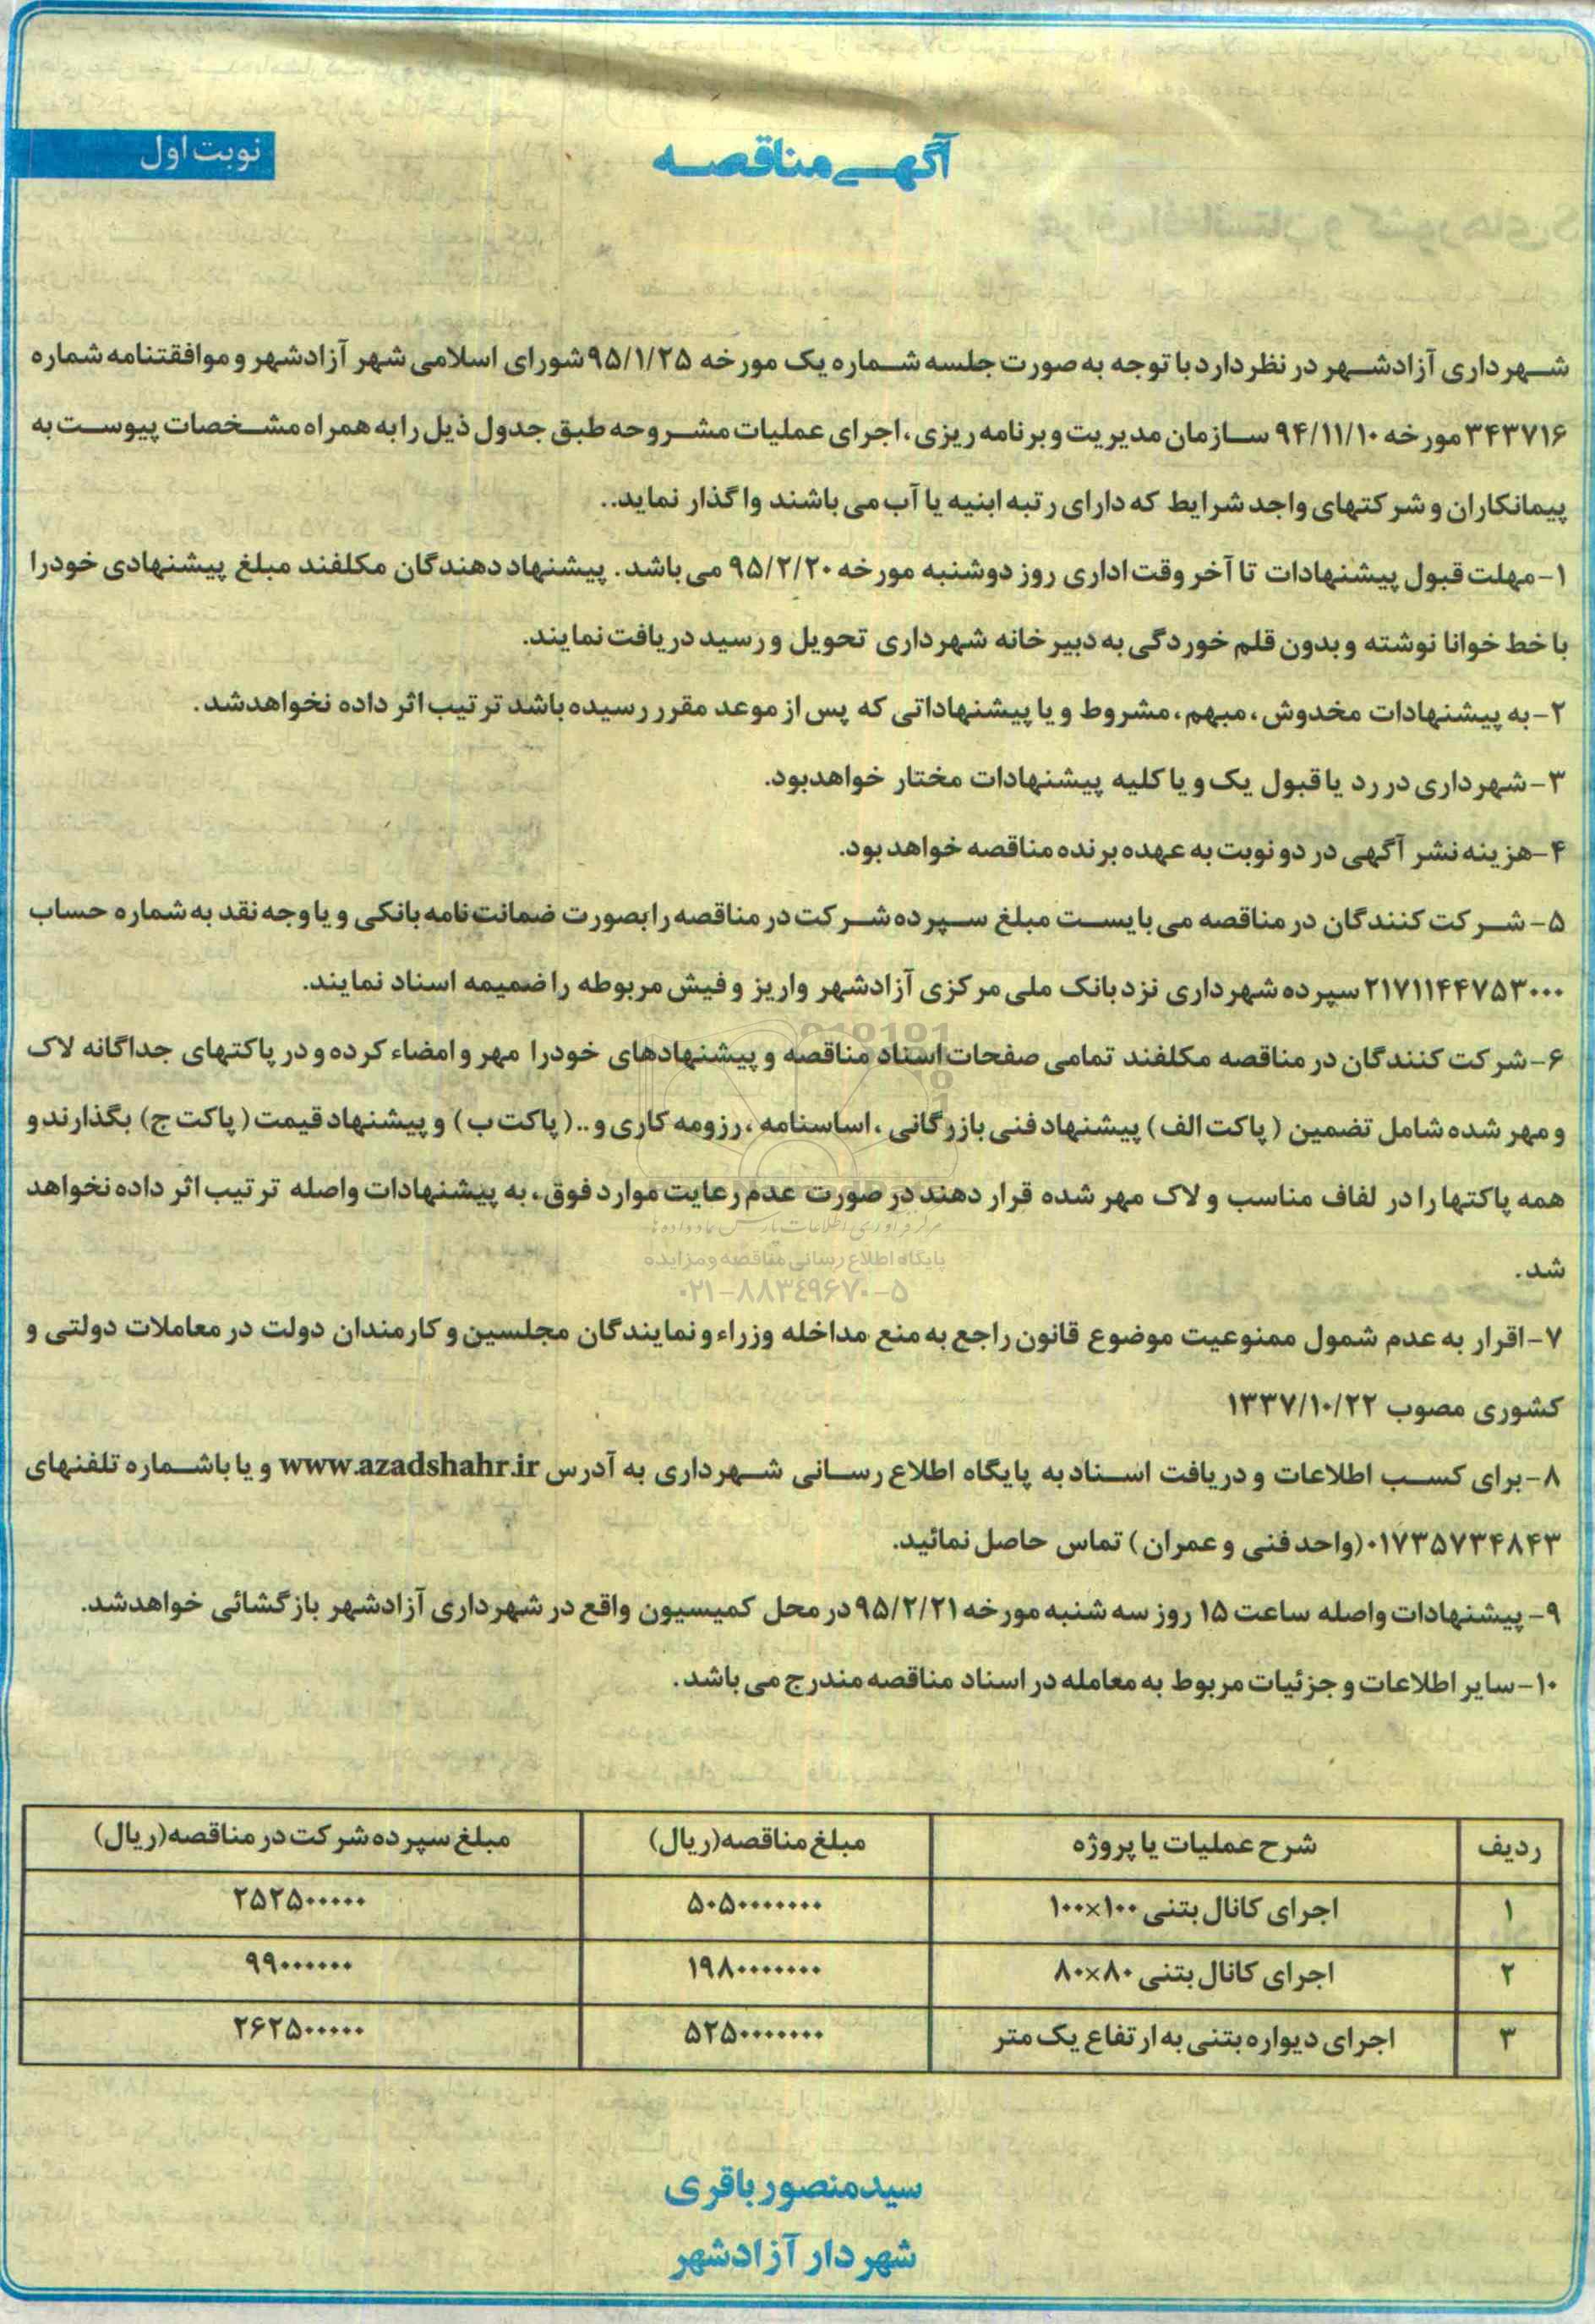 آگهی مناقصه
نوبت اول
شهرداری آزادشهر در نظر دارد با توجه به صورت جلسه شماره یک مورخه ۹۵/۱/۲۵ شورای اسلامی شهر آزادشهر و موافقتنامه شماره
۳۴۳۷۱۶ مورخه ۹۴/۱۱/۱۰ سازمان مدیریت و برنامه ریزی، اجرای عملیات مشروحه طبق جدول ذیل را به همراه مشخصات پیوست به
پیمانکاران و شرکتهای واجد شرایط که دارای رتبه ابنیه یا آب می باشند واگذار نماید..
۱- مهلت قبول پیشنهادات تا آخر وقت اداری روز دوشنبه مورخه ۹۵/۲/۲۰ می باشد. پیشنهاد دهندگان مکلفند مبلغ پیشنهادی خودرا
با خط خوانا نوشته و بدون قلم خوردگی به دبیرخانه شهرداری تحویل و رسید دریافت نمایند.
۲- به پیشنهادات مخدوش، مبهم، مشروط و یا پیشنهاداتی که پس از موعد مقرر رسیده باشد ترتیب اثر داده نخواهدشد.
۳- شهرداری در رد یا قبول یک و یا کلیه پیشنهادات مختار خواهدبود.
۴- هزینه نشر آگهی در دو نوبت به عهده برنده مناقصه خواهد بود.
۵- شرکت کنندگان در مناقصه می بایست مبلغ سپرده شرکت در مناقصه را بصورت ضمانت نامه بانکی و یا وجه نقد به شماره حساب
۲۱۷۱۱۴۴۷۵۳۰۰۰ سپرده شهرداری نزد بانک ملی مرکزی آزادشهر واریز و فیش مربوطه را ضمیمه اسناد نمایند.
۶- شرکت کنندگان در مناقصه مکلفند تمامی صفحات اسناد مناقصه و پیشنهادهای خودرا مهر و امضاء کرده و در پاکتهای جداگانه لاک
و مهر شده شامل تضمین (پاکت الف) پیشنهاد فنی بازرگانی، اساسنامه، رزومه کاری و .. (پاکت ب) و پیشنهاد قیمت (پاکت ج) بگذارند و
همه پاکتها را در لفاف مناسب و لاک مهر شده قرار دهند در صورت عدم رعایت موارد فوق، به پیشنهادات واصله ترتیب اثر داده نخواهد
شد.
مرکز فرآوری اطلاعات پارس نماد داده ها
پایگاه اطلاع رسانی مناقصه و مزایده
۰۲۱-۸۸۳۴۹۶۷۰-۵
۷- اقرار به عدم شمول ممنوعیت موضوع قانون راجع به منع مداخله وزراء و نمایندگان مجلسین و کارمندان دولت در معاملات دولتی و
کشوری مصوب ۱۳۳۷/۱۰/۲۲
۸- برای کسب اطلاعات و دریافت اسناد به پایگاه اطلاع رسانی شهرداری به آدرس www.azadshahr.ir و یا باشماره تلفنهای
۰۱۷۳۵۷۳۴۸۴۳ (واحد فنی و عمران) تماس حاصل نمائید.
۹- پیشنهادات واصله ساعت ۱۵ روز سه شنبه مورخه ۹۵/۲/۲۱ در محل کمیسیون واقع در شهرداری آزادشهر بازگشائی خواهدشد.
۱۰- سایر اطلاعات و جزئیات مربوط به معامله در اسناد مناقصه مندرج می باشد.
ردیف شرح عملیات یا پروژه مبلغ مناقصه(ریال) مبلغ سپرده شرکت در مناقصه(ریال)
۱ اجرای کانال بتنی ۱۰۰×۱۰۰ ۵۰۵۰۰۰۰۰۰۰ ۲۵۲۵۰۰۰۰۰
۲ اجرای کانال بتنی ۸۰×۸۰ ۱۹۸۰۰۰۰۰۰۰ ۹۹۰۰۰۰۰۰
۳ اجرای دیواره بتنی به ارتفاع یک متر ۵۲۵۰۰۰۰۰۰۰ ۲۶۲۵۰۰۰۰۰
سیدمنصور باقری
شهردار آزادشهر